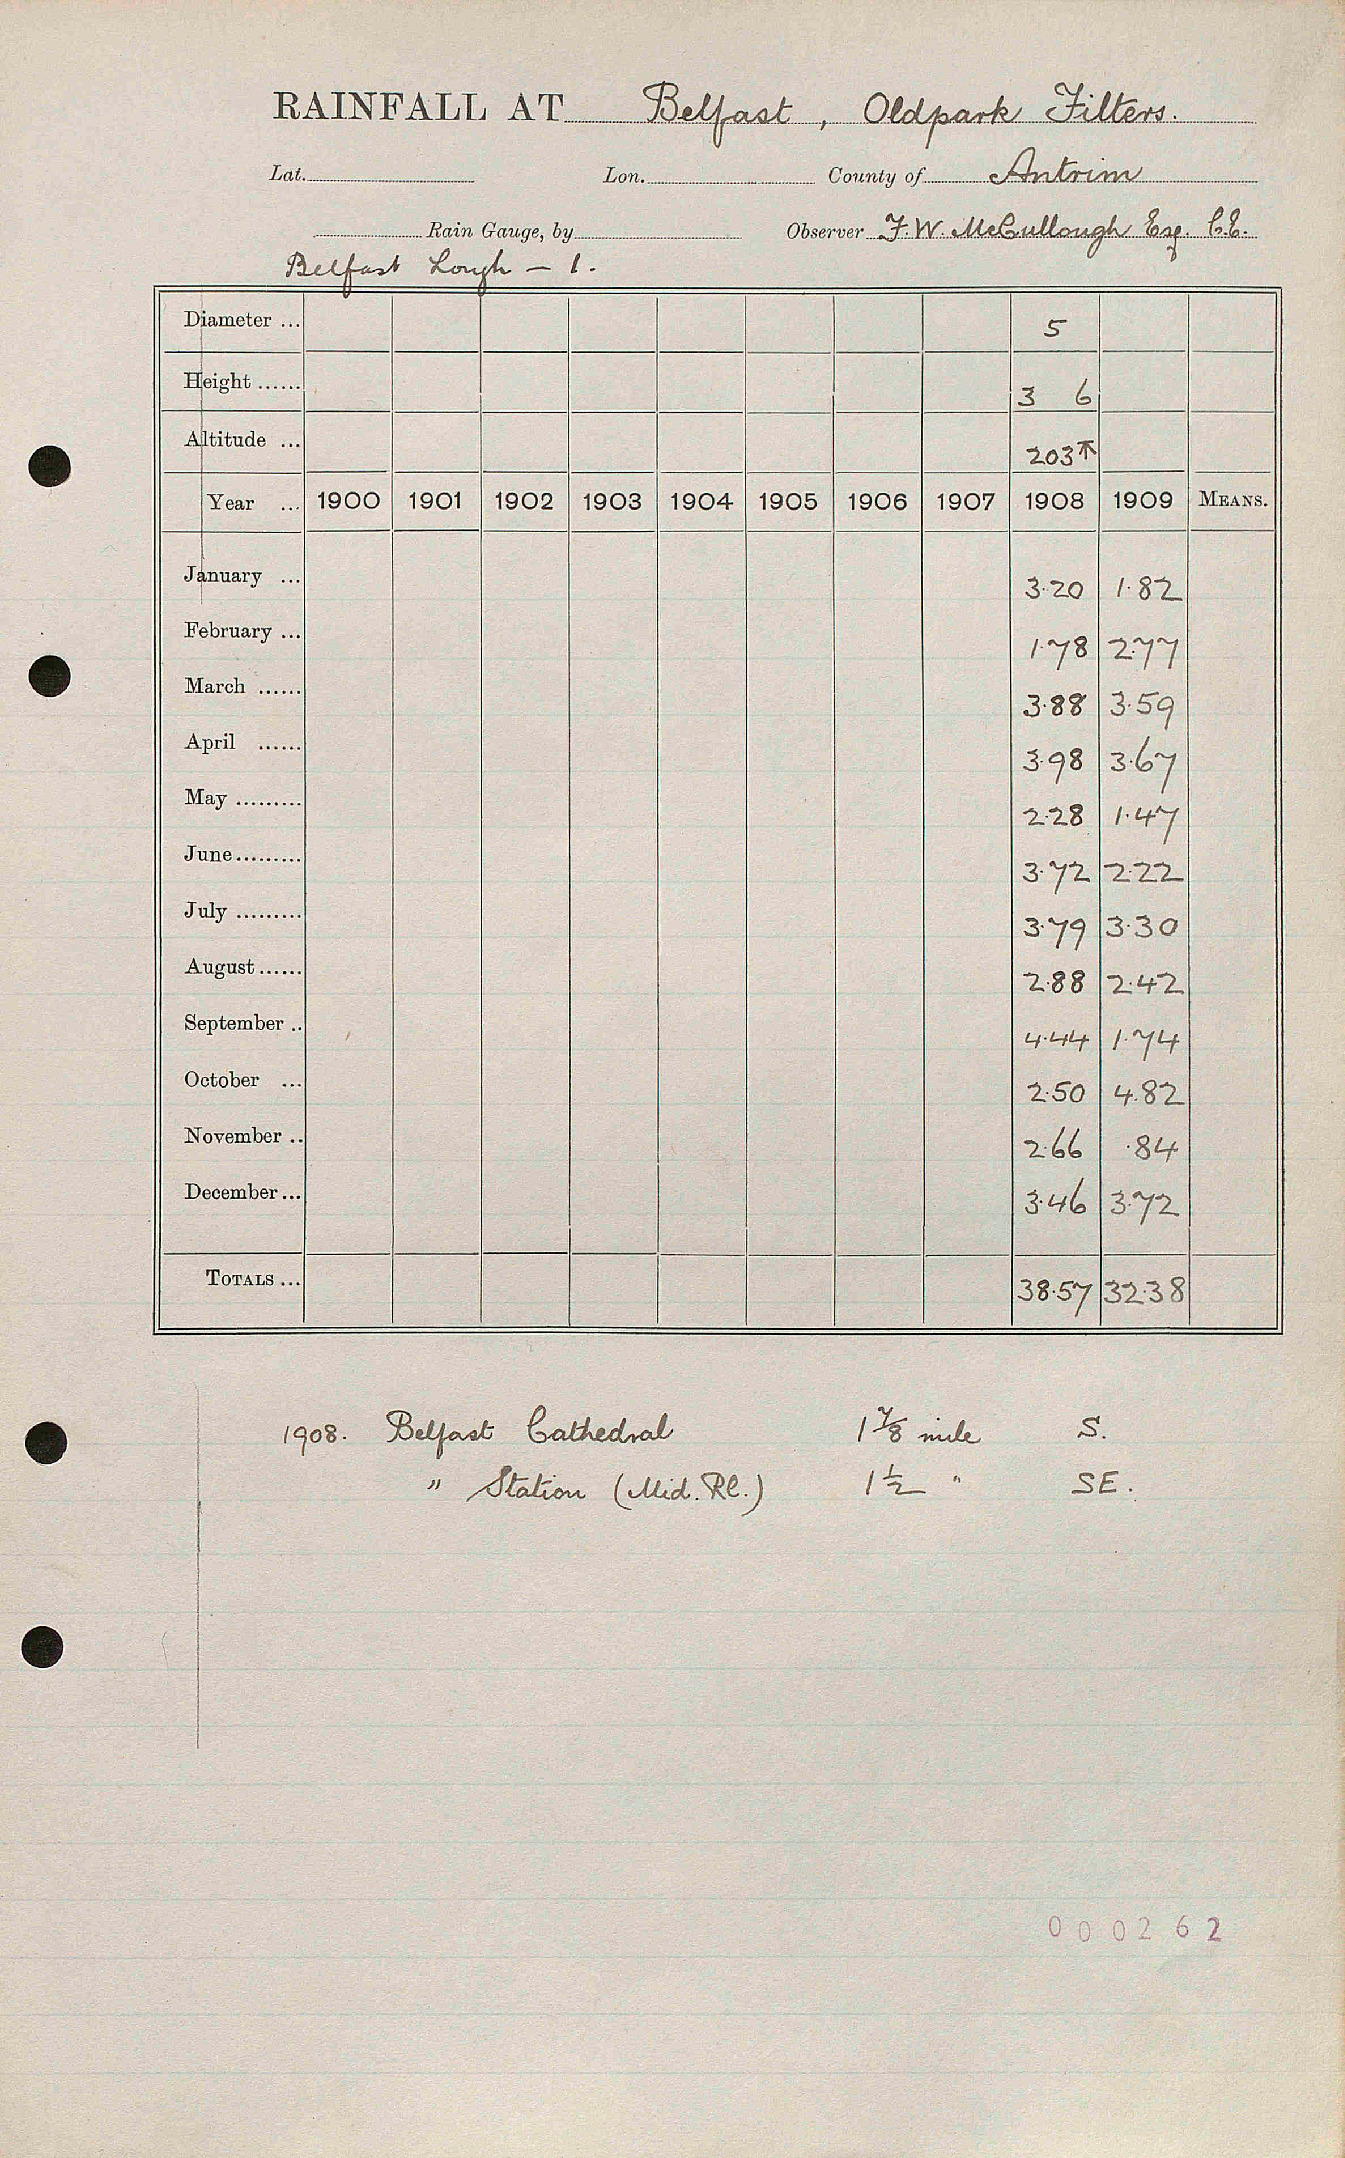 RAINFALL AT Belfast, Oldpark Filters.
Lat. Lon. County of Antrim
Rain Gauge, by Observer F. W. McCullough Esq. C.E.
Belfast Lough — 1.
Diameter ... 5
Height ...... 3 6
Altitude ... 203
Year ... 1900 1901 1902 1903 1904 1905 1906 1907 1908 1909 MEANS.
January ... 3.20 1.82
February ... 1.78 2.77
March ...... 3.88 3.59
April ...... 3.98 3.67
May ......... 2.28 1.47
June ......... 3.72 2.22
July ......... 3.79 3.30
August ...... 2.88 2.42
September .. 4.44 1.74
October ... 2.50 4.82
November .. 2.66 .84
December ... 3.46 3.72
TOTALS ... 38.57 32.38
1908. Belfast Cathedral 1 7/8 mile S.
" Station (Mid. Rl.) 1 1/2 " SE.
000262